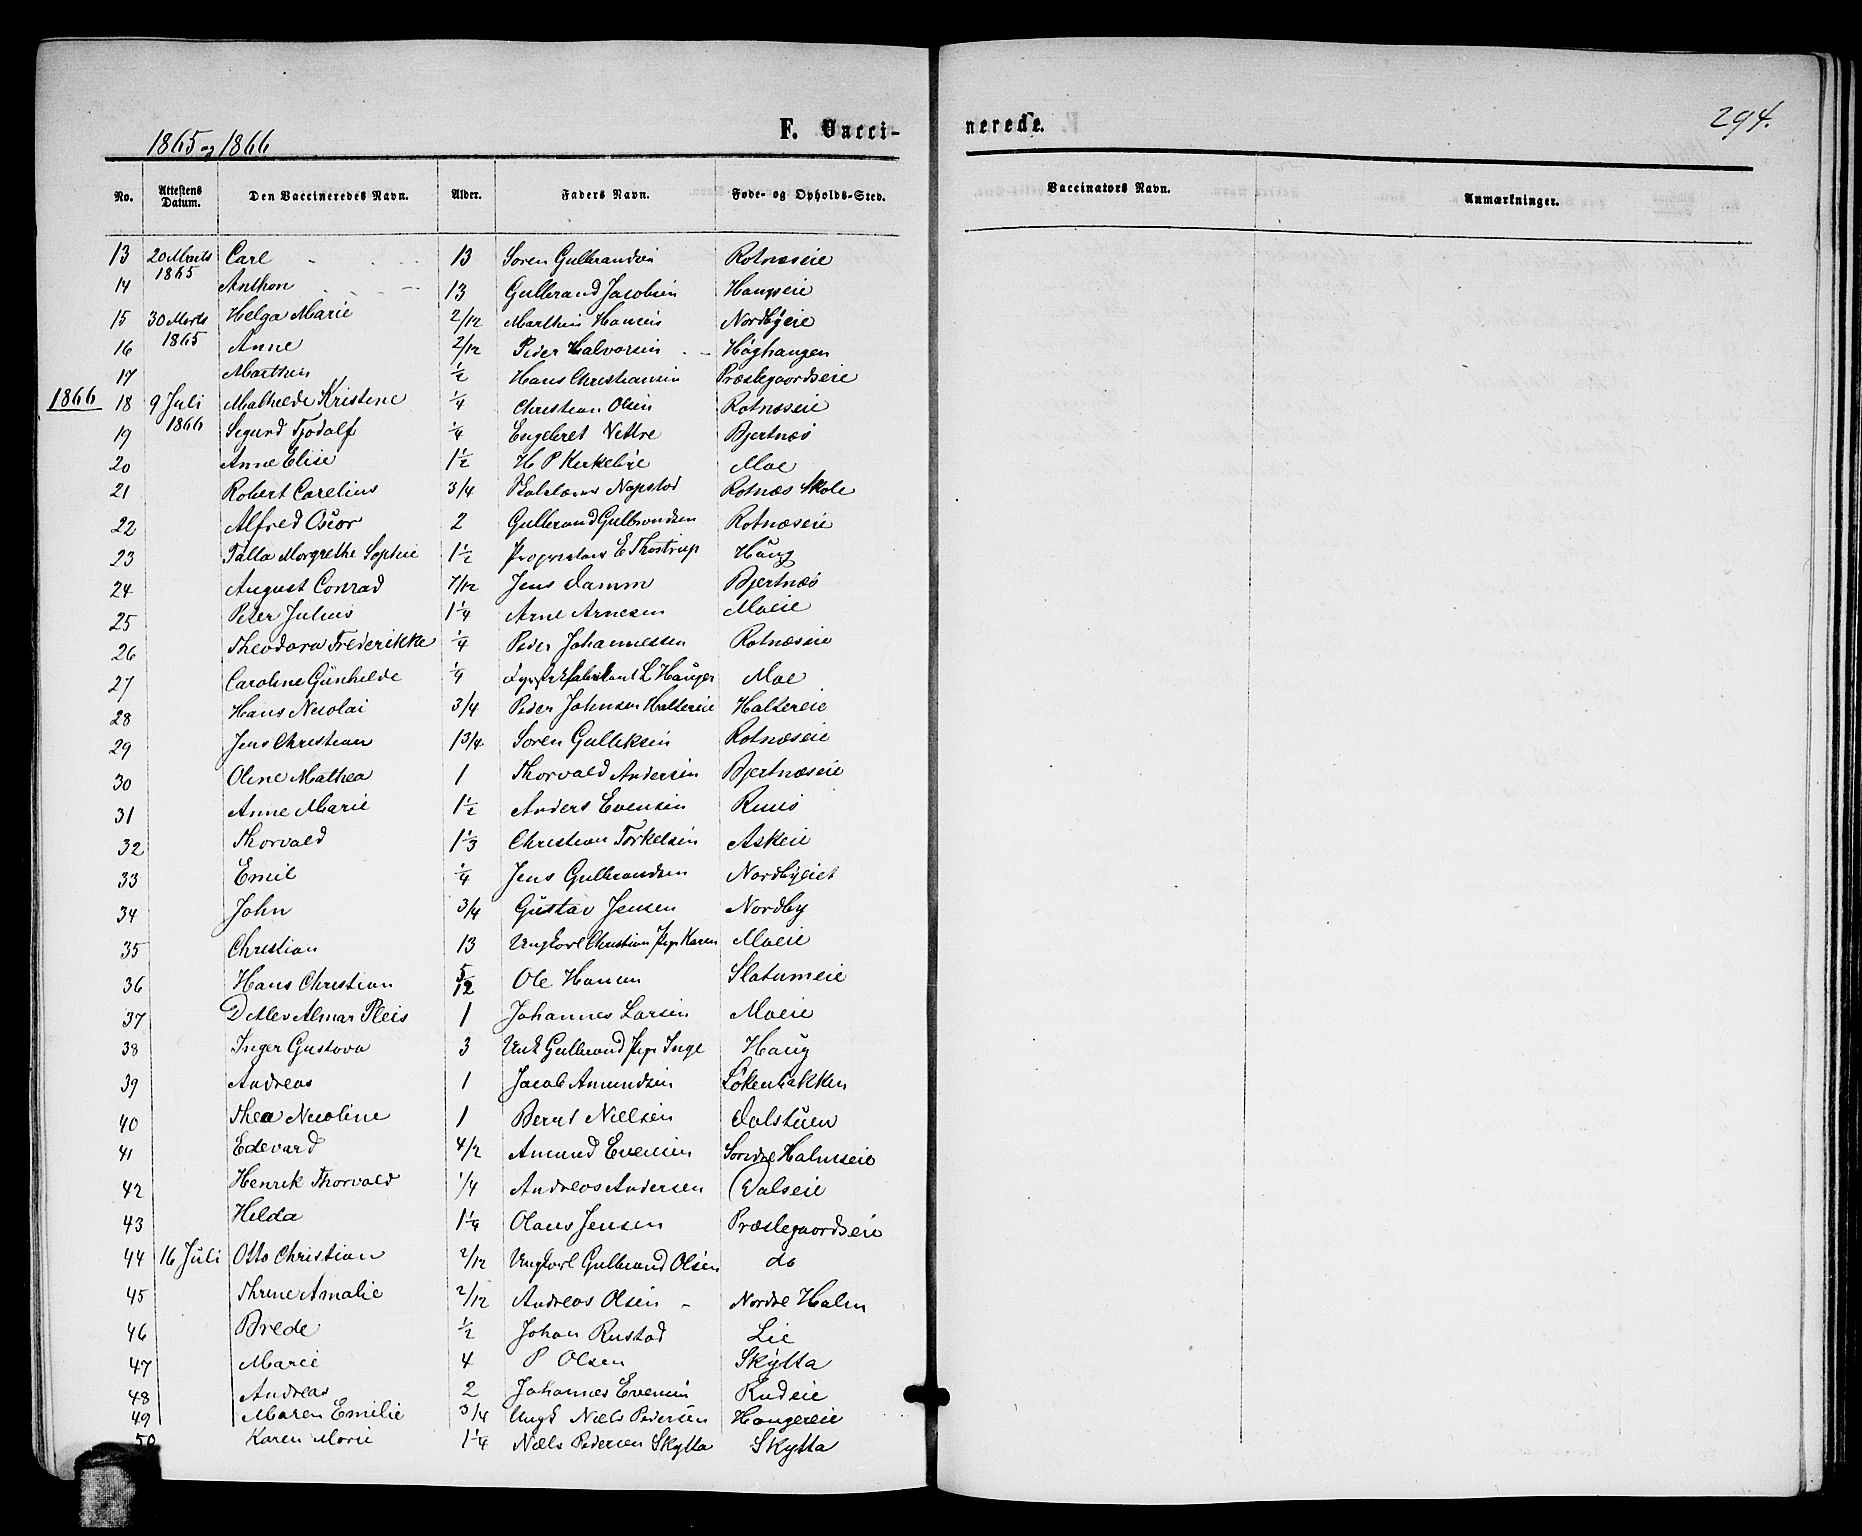 294.
1865 og 1866
F. Vacci-
nerede.
No. Attestens Datum. Den Vaccineredes Navn. Alder. Faders Navn. Føde- og Opholds-Sted. Vaccinators Navn. Anmærkninger.
13 20 Marts 1865 Carl 13 Soren Gulbrandsen Rotnæseie
14 Anthon 13 Gulbrand Jacobsen Haugseie
15 30 Marts 1865 Helga Marie 2/12 Marthin Hansen Nordbyeie
16 Anne 2/12 Peder Halvorsen Høghaugen
17 Marthin 1/2 Hans Christiansen Præstegaardseie
1866
18 9 Juli 1866 Mathilde Kristine 1/4 Christian Olsen Rotnæseie
19 Sigurd Tjodalf 1/4 Engebret Vettre Bjertnæs
20 Anne Elise 1 1/2 H P Kirkebye Moe
21 Robert Carelius 3/4 Napstad Rotnæs Skole
22 Alfred Oscar 2 Gulbrand Gulbrandsen Rotnæseie
23 Talla Margrethe Sophie 1 1/2 Proprietær E Thostrup Haug
24 August Conrad 7/12 Jens Damm Bjertnæs
25 Peter Julius 1 1/4 Arne Arnesen Moeie
26 Theodora Frederikke 1/4 Peder Johannessen Rotnæseie
27 Caroline Gunhilde 1/4 L Hauger Moe
28 Hans Nicolai 3/4 Peder Johnsen Haltereie Haltereie
29 Jens Christian 1 3/4 Soren Gulliksen Rotnæseie
30 Oline Mathea 1 Thorvald Andersen Bjertnæseie
31 Anne Marie 1 1/2 Anders Evensen
32 Thorvald 1 1/3 Christian Torkelsen Askeie
33 Emil 1/4 Jens Gulbrandsen Nordbyeiet
34 John 3/4 Gustav Jensen Nordby
35 Christian 13 Ungkarl Christian Pige Karen Moeie
36 Hans Christian 5/12 Ole Hansen Slatumeie
37 Ditlev Almar 1 Johannes Larsen Moeie
38 Inger Gustava 3 Unk Gulbrand Pige Inge Haug
39 Andreas 1 Jacob Amundsen Løkenbakken
40 Thea Nicoline 1 Bernt Nielsen Dalstuen
41 Edevard 4/2 Amund Evensen Søndre Halmseie
42 Henrik Thorvald 1/4 Andreas Andersen Dalseie
43 Hilda 1 1/4 Olaus Jensen Præstegaardseie
44 16 Juli Otto Christian 2/12 Ungkarl Gulbrand Olsen do
45 Thrine Amalie 2/12 Andreas Olsen Nordre Halm
46 Brede 1/2 Johan Rustad Lie
47 Marie 4 P Olsen Skytta
48 Andreas 2 Johannes Evensen Rudeie
49 Maren Emilie 3/4 Ungk Niels Pedersen Haugereie
50 Karen Marie 1 1/4 Niels Pedersen Skytta Skytta